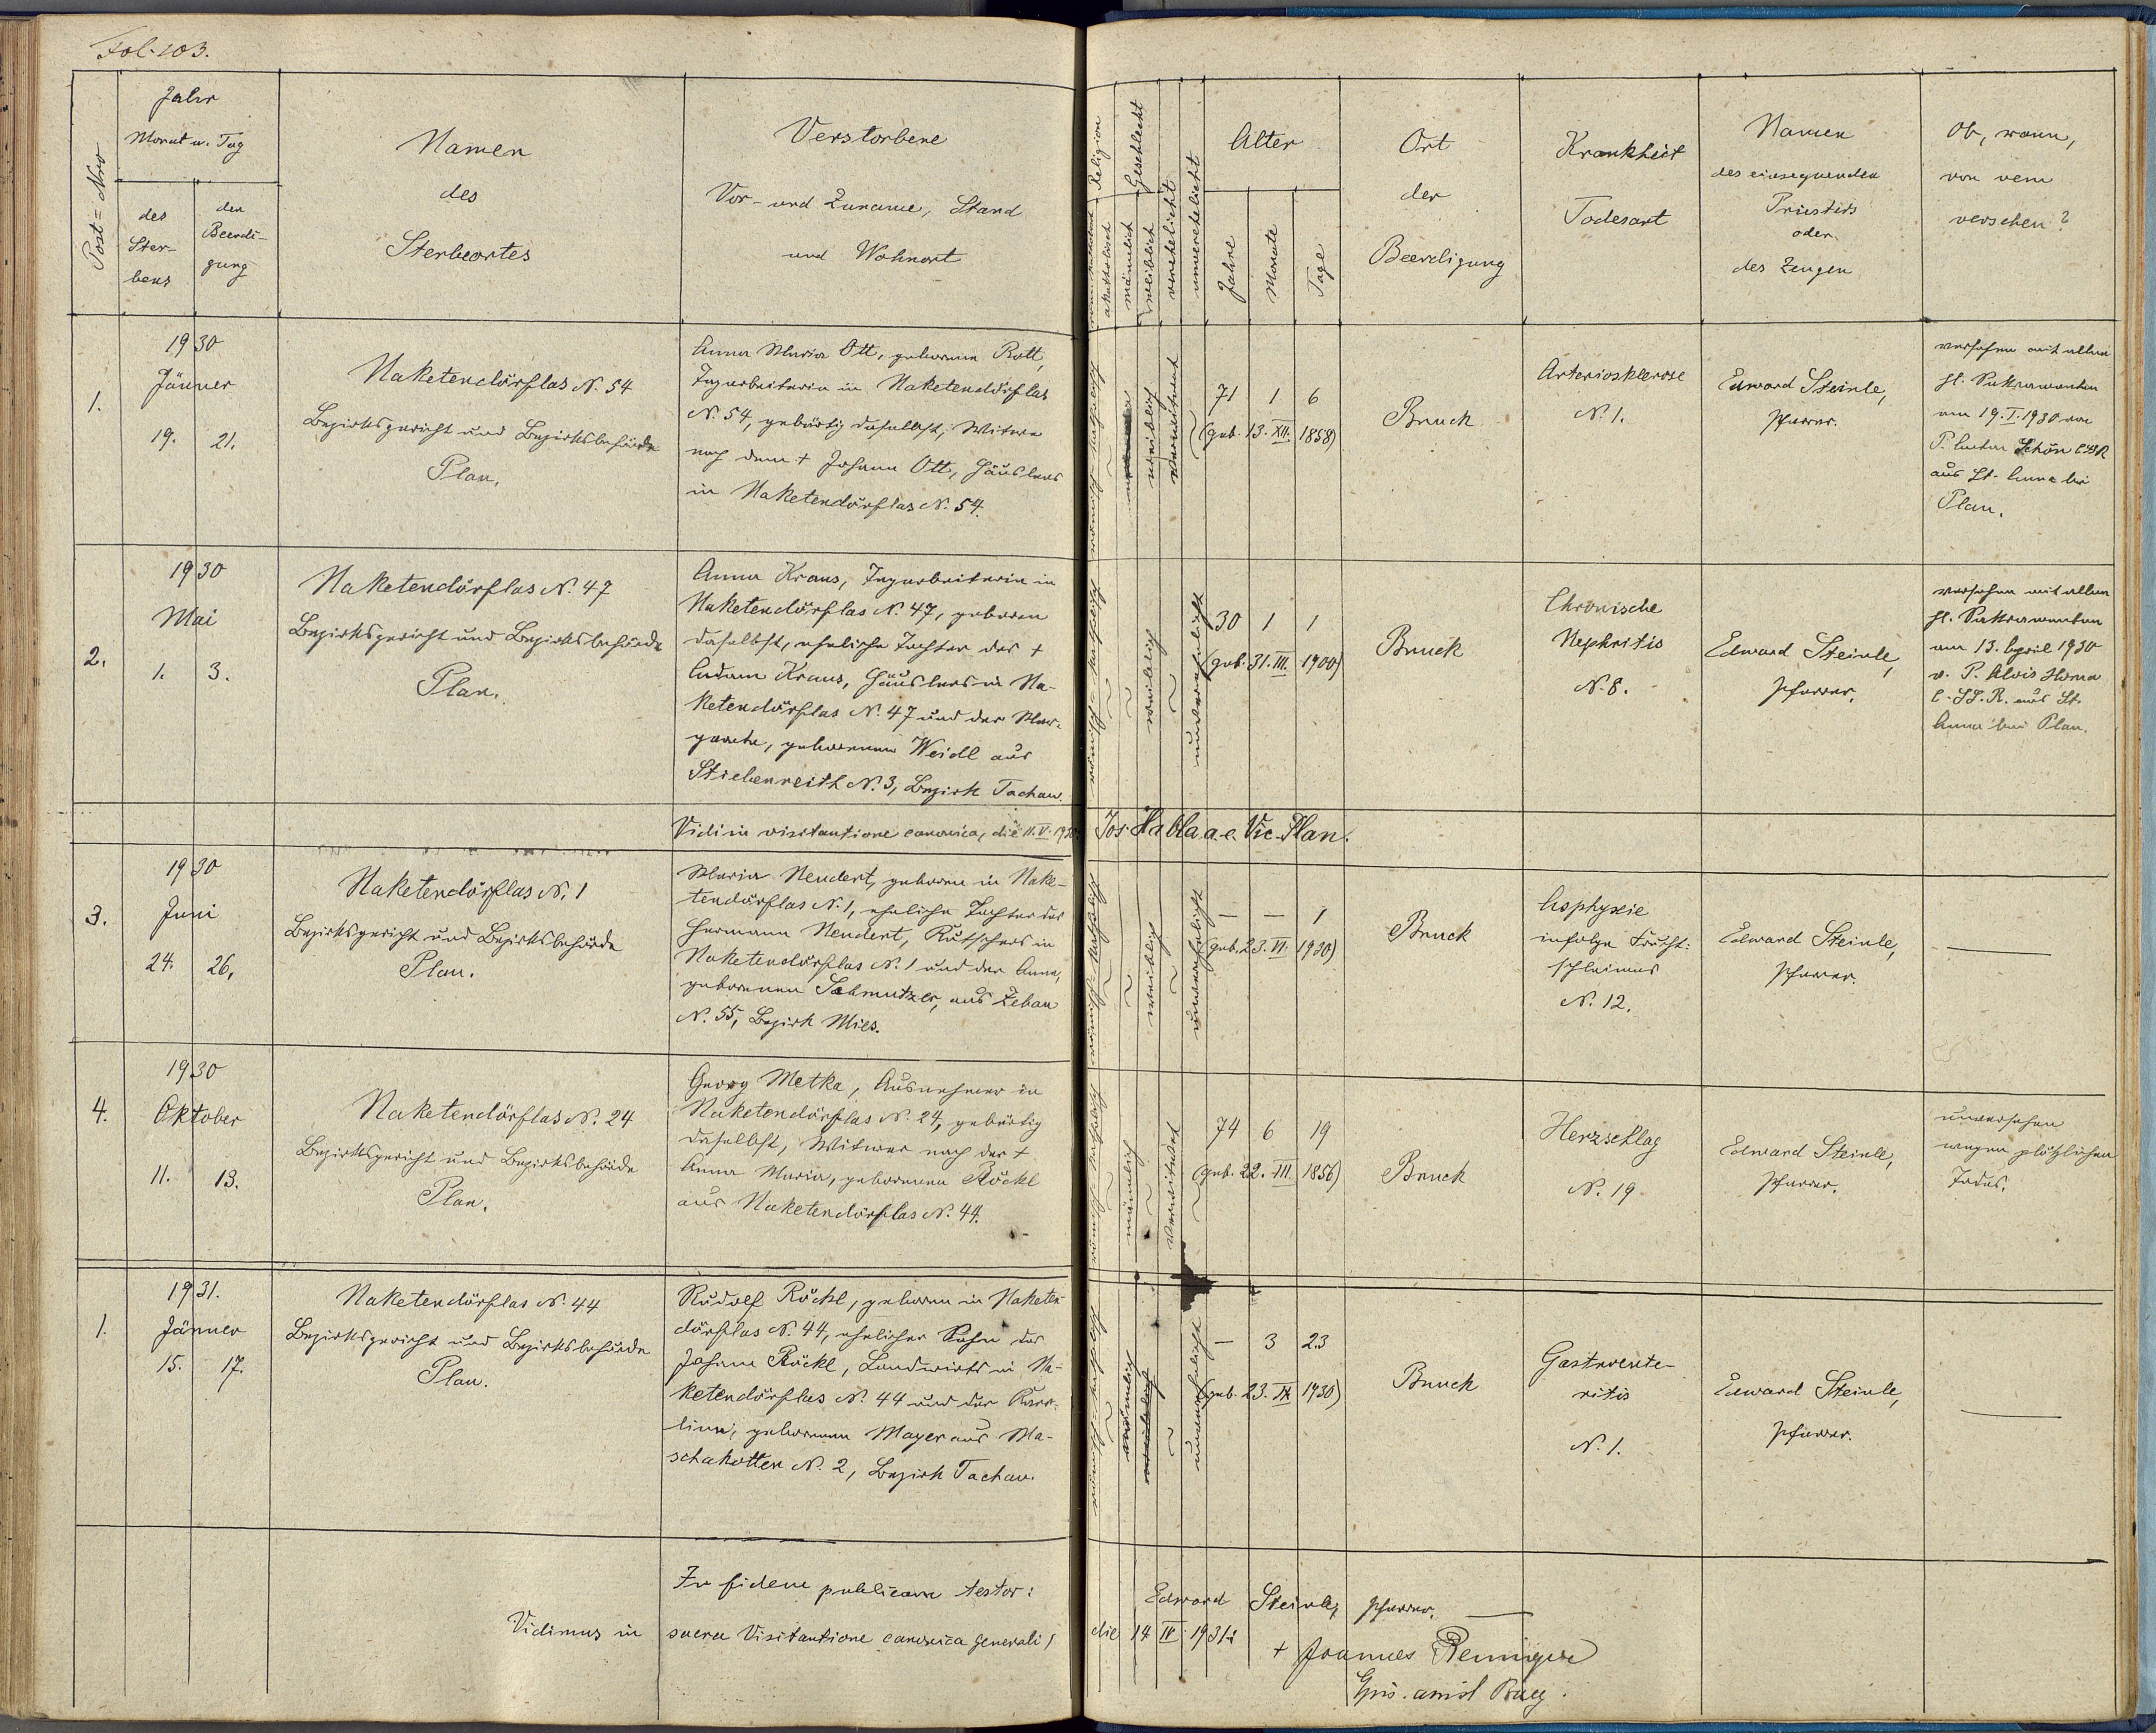 Fol. 103.
Post-Nro
Jahr
Monat u. Tag
des
Ster-
bens
der
Beerdi-
gung
Namen
des
Sterbeortes
Verstorbene
Vor- und Zuname, Stand
und Wohnort
Religion
akatholisch
Geschlecht
männlich
weiblich
verehelicht
unverehelicht
Alter
Jahre
Monate
Tage
Ort
der
Beerdigung
Krankheit
Todesart
Namen
des einsegnenden
Priesters
oder
des Zeugen
Ob, wann,
von wem
versehen?
1.
1930
Jänner
19. 21.
Naketendörflas N. 54
Bezirksgericht und Bezirksbehörde
Plan.
Anna Maria Ott, geborene Rott,
Tagarbeiterin in Naketendörflas
N. 54, gebürtig daselbst, Witwe
nach dem + Johann Ott, Häuslers
in Naketendörflas N. 54.
römisch-katholisch
weiblich
verwitwet
71 1 6
(geb. 13. XII. 1858)
Bruck
Arteriosklerose
N. 1.
Edward Steinle,
Pfarrer.
versehen mit allen
hl. Sakramenten
am 19. I. 1930 von
P. Anton Schön CSSR
aus St. Anna bei
Plan.
2.
1930
Mai
1. 3.
Naketendörflas N. 47
Bezirksgericht und Bezirksbehörde
Plan.
Anna Kraus, Tagarbeiterin in
Naketendörflas N. 47, geboren
daselbst, eheliche Tochter des +
Adam Kraus, Häuslers in Na-
ketendörflas N. 47 und der Mar-
gareta, geborenen Weidl aus
Stiebenreith N. 3, Bezirk Tachau.
römisch-katholisch
weiblich
unverehelicht
30 1 1
(geb. 31. III. 1900)
Bruck
Chronische
Nephritis
N. 8.
Edward Steinle,
Pfarrer.
versehen mit allen
hl. Sakramenten
am 13. April 1930
v. P. Alois
C. SS. R. aus St.
Anna bei Plan.
Vidi in visitatione canonica, die 11. V. 1930 Jos. Habla a. e. Vic. Plan.
3.
1930
Juni
24. 26.
Naketendörflas N. 1
Bezirksgericht und Bezirksbehörde
Plan.
Maria Nendert, geboren in Nake-
tendörflas N. 1, eheliche Tochter des
Hermann Nendert, Kutschers in
Naketendörflas N. 1 und der Anna,
geborenen Schmutzer, aus Zeban
N. 55, Bezirk Mies.
römisch-katholisch
weiblich
unverehelicht
— — 1
(geb. 23. VI. 1930)
Bruck
Asphyxie
infolge Frucht-
schleimes
N. 12.
Edward Steinle,
Pfarrer.
—
4.
1930
Oktober
11. 13.
Naketendörflas N. 24
Bezirksgericht und Bezirksbehörde
Plan.
Georg Metka, Ausnehmer in
Naketendörflas N. 24, gebürtig
daselbst, Witwer nach der +
Anna Maria, geborenen Röckl
aus Naketendörflas N. 44.
römisch-katholisch
männlich
verwitwet
74 6 19
(geb. 22. III. 1856)
Bruck
Herzschlag
N. 19
Edward Steinle,
Pfarrer.
unversehen
wegen plötzlichen
Todes.
1.
1931.
Jänner
15. 17.
Naketendörflas N. 44
Bezirksgericht und Bezirksbehörde
Plan.
Rudolf Röckl, geboren in Naketen-
dörflas N. 44, ehelicher Sohn des
Johann Röckl, Landwirts in Na-
ketendörflas N. 44 und der Karo-
lina, geborenen Mayer aus Ma-
schakotten N. 2, Bezirk Tachau.
römisch-katholisch
männlich
unverehelicht
— 3 23
(geb. 23. IX. 1930)
Bruck
Gastroente-
ritis
N. 1.
Edward Steinle,
Pfarrer.
—
In fidem publicam testor:
Edward Steinle, Pfarrer.
Vidimus in sacra Visitatione canonica generali, die 14 IV 1931:
+ Joannes Remiger